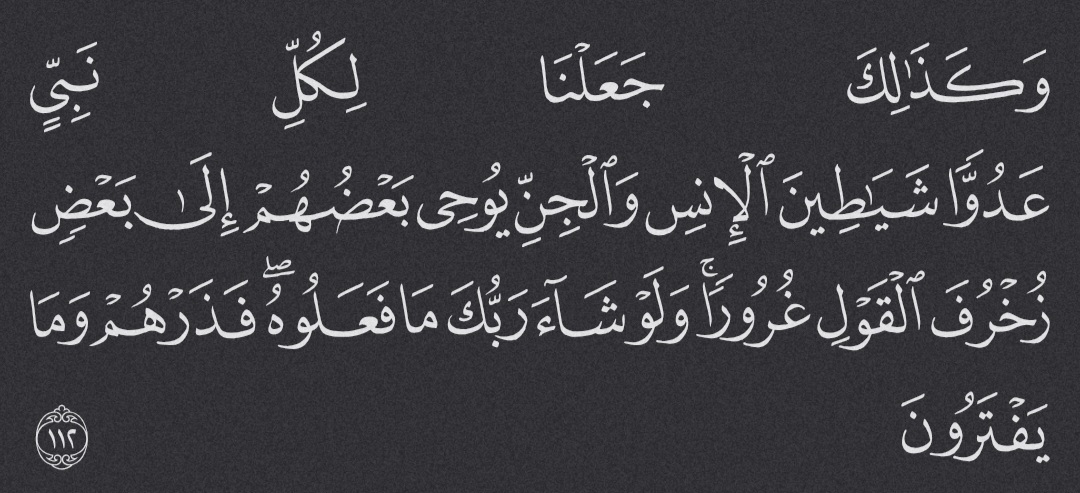 وَكَذَٰلِكَ جَعَلْنَا لِكُلِّ نَبِيٍّ
عَدُوًّا شَيَـٰطِينَ ٱلْإِنسِ وَٱلْجِنِّ يُوحِى بَعْضُهُمْ إِلَىٰ بَعْضٍ
زُخْرُفَ ٱلْقَوْلِ غُرُورًا ۚ وَلَوْ شَآءَ رَبُّكَ مَا فَعَلُوهُ ۖ فَذَرْهُمْ وَمَا
يَفْتَرُونَ ١١٢